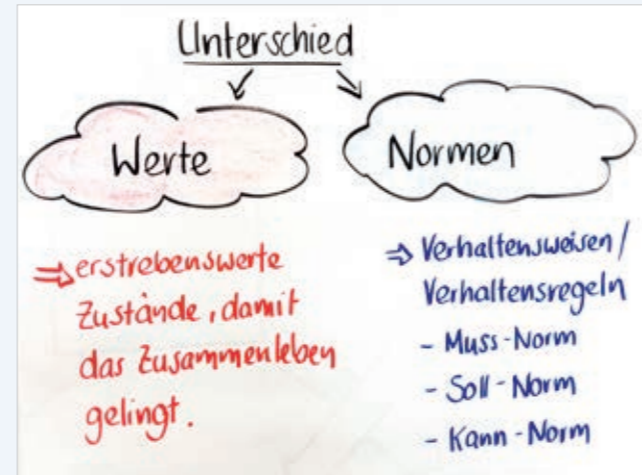 Unterschied
Werte
⇒ erstrebenswerte
Zustände, damit
das Zusammenleben
gelingt.
Normen
⇒ Verhaltensweisen /
Verhaltensregeln
- Muss-Norm
- Soll-Norm
- Kann-Norm